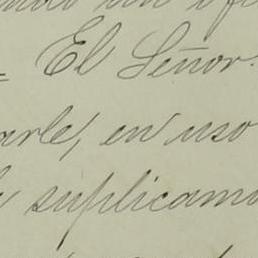 un
El Señor.
arle, en uso
suplicamo